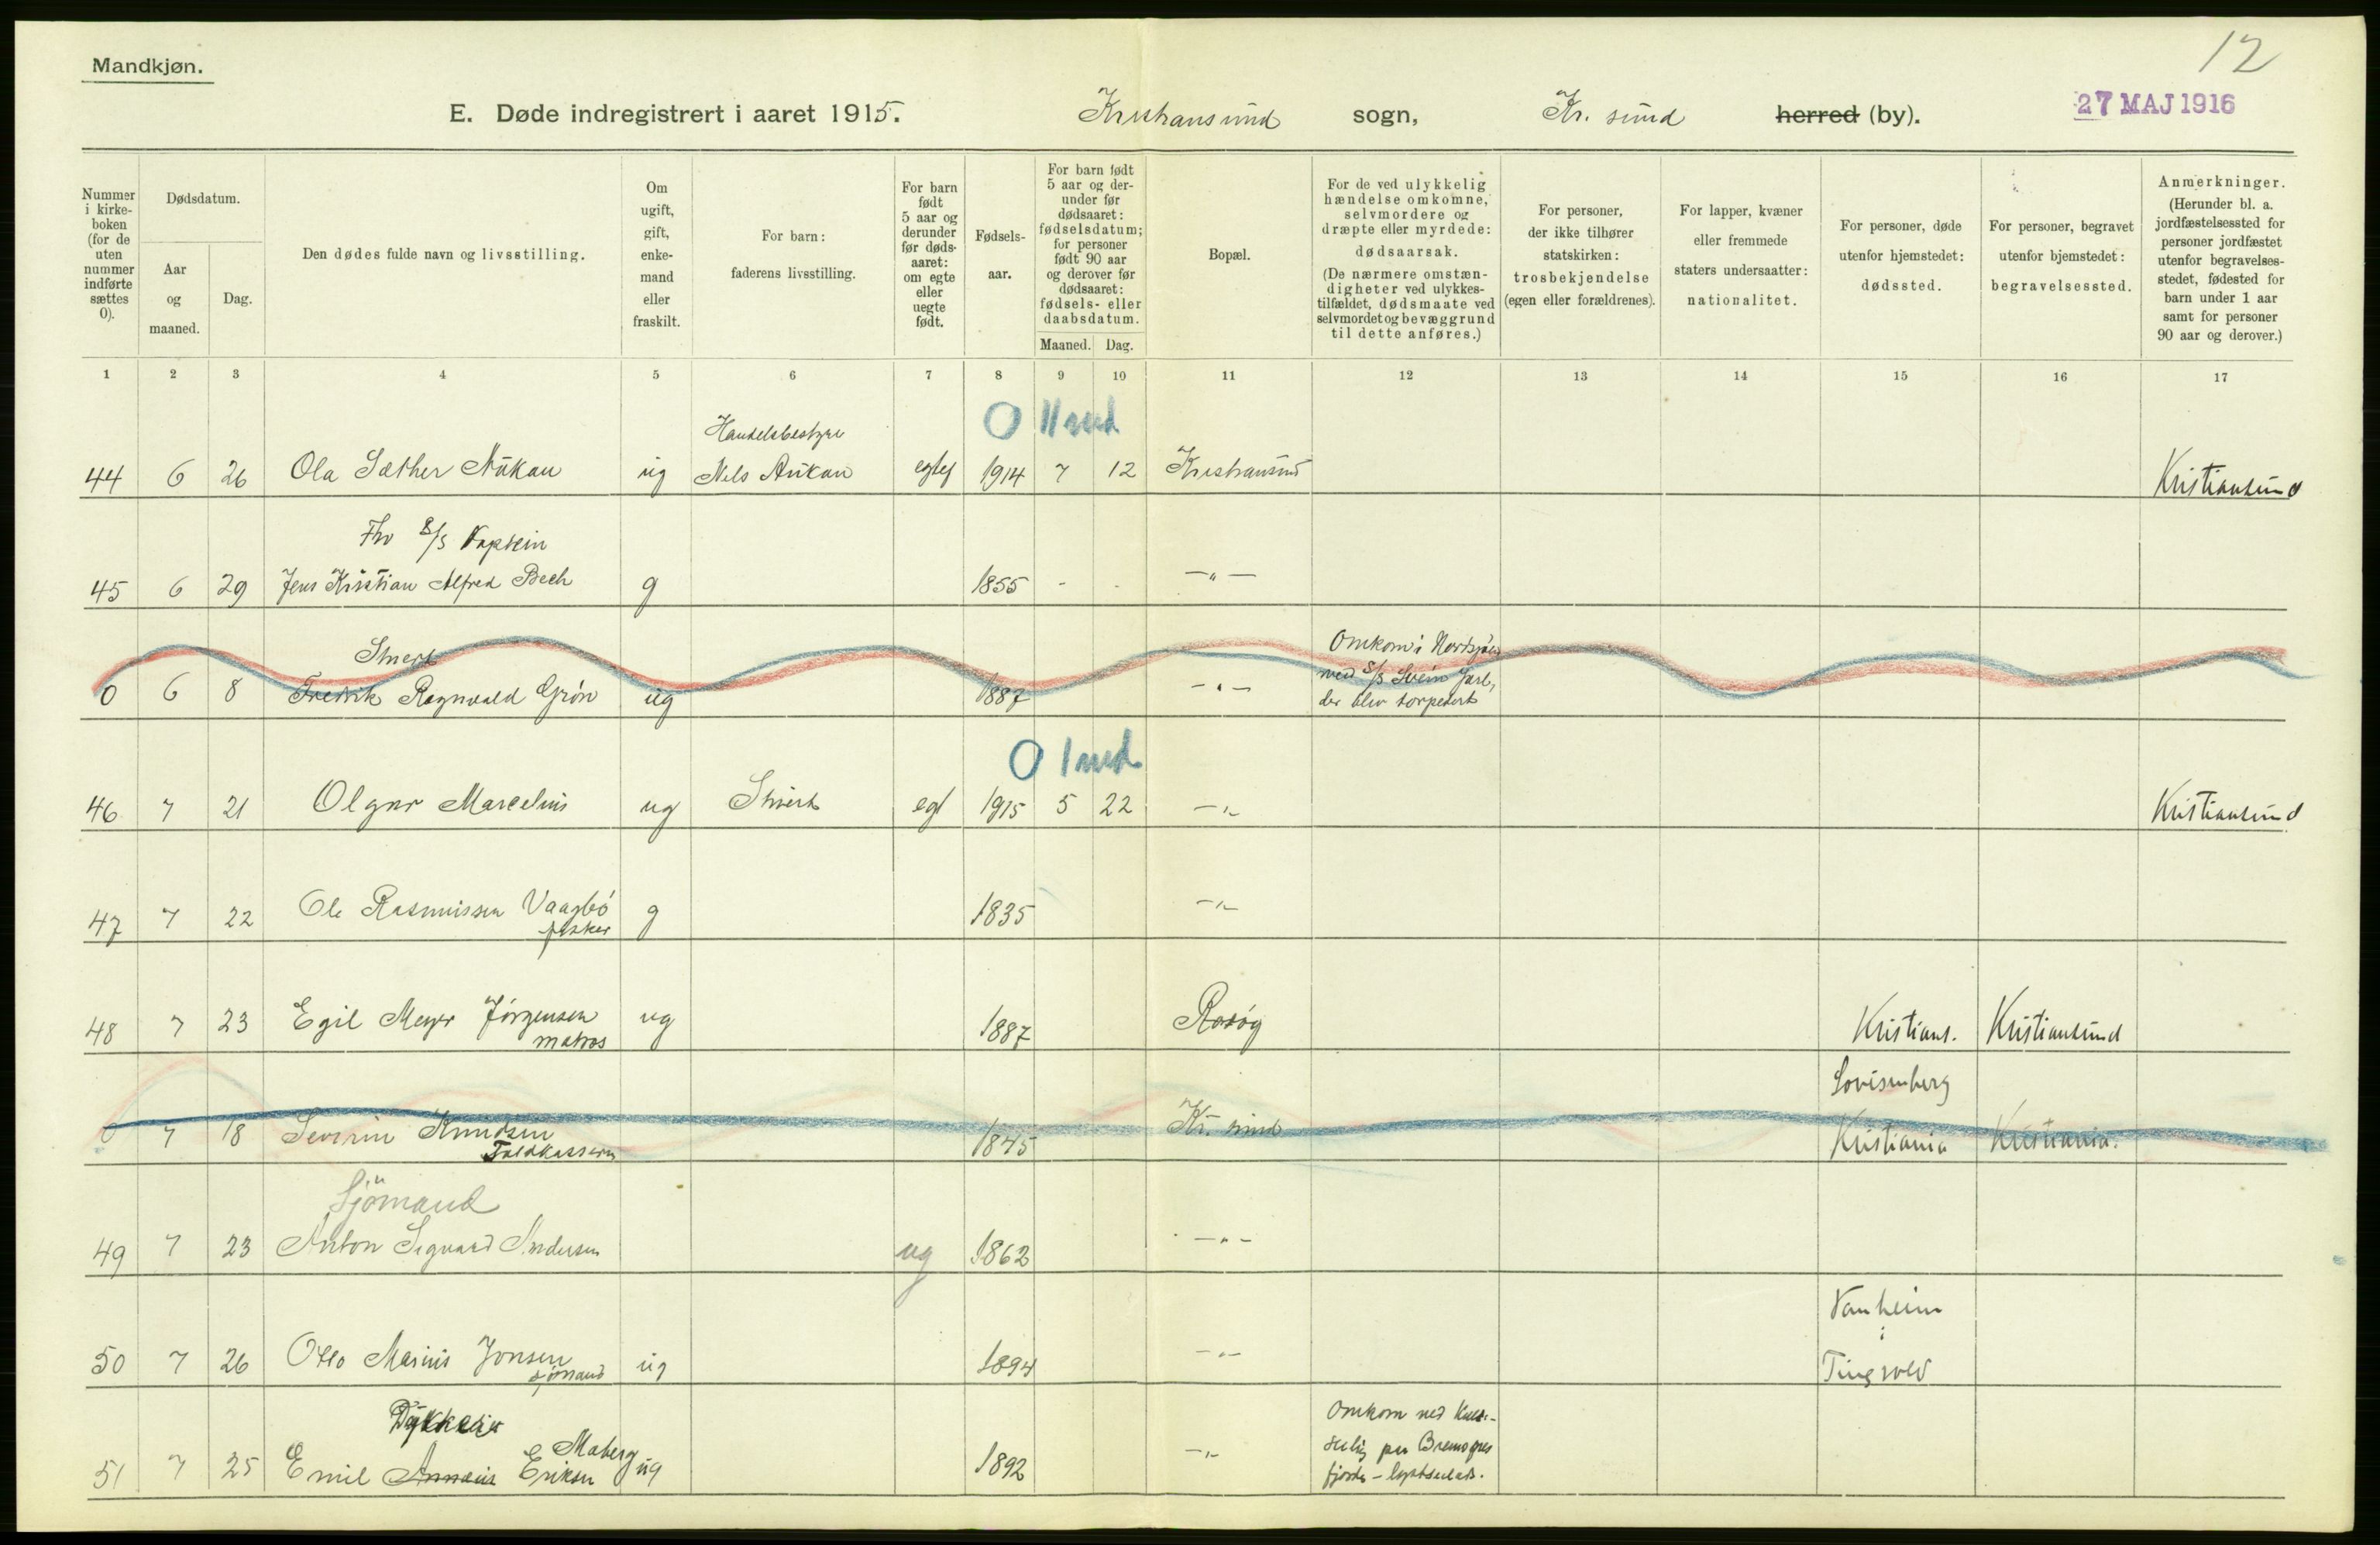 12
Mandkjøn.
E. Døde indregistrert i aaret 1915. Kristiansund sogn, Kr. sund herred (by). 27 MAJ 1916
Nummer i kirke-boken (for de uten nummer indførte sættes 0).
Dødsdatum.
Aar og maaned.
Dag.
Den dødes fulde navn og livsstilling.
Om ugift, gift, enke-mand eller fraskilt.
For barn: faderens livsstilling.
For barn født 5 aar og derunder før døds-aaret: om egte eller uegte født.
Fødsels-aar.
For barn født 5 aar og der-under før dødsaaret: fødselsdatum; for personer født 90 aar og derover før dødsaaret: fødsels- eller daabsdatum.
Maaned. Dag.
Bopæl.
For de ved ulykkelig hændelse omkomne, selvmordere og dræpte eller myrdede: dødsaarsak. (De nærmere omstæn-digheter ved ulykkes-tilfældet, dødsmaate ved selvmordet og bevæggrund til dette anføres.)
For personer, der ikke tilhører statskirken: trosbekjendelse (egen eller forældrenes).
For lapper, kvæner eller fremmede staters undersaatter: nationalitet.
For personer, døde utenfor hjemstedet: dødssted.
For personer, begravet utenfor bjemstedet: begravelsessted.
Anmerkninger. (Herunder bl. a. jordfæstelsessted for personer jordfæstet utenfor begravelses-stedet, fødested for barn under 1 aar samt for personer 90 aar og derover.)
1 2 3 4 5 6 7 8 9 10 11 12 13 14 15 16 17
0 11 md
Handelsbestyr
44 6 26 Ola Sæther Aukan ug Nels Aukan 1914 7 12 Kristiansund Kristiansund
S/S Kaptein
45 6 29 Jens Kristian Alfred Bech g 1855 - - -"-
Stuert Omkom i Nordsjøen
0 6 8 Fredrik Ragnvald Grön ug 1887 -"- med S/S Svein Jarl,
der blev torpedert
0 1 md
46 7 21 Olgar Marcelius ug Stuert egt 1915 5 22 -"- Kristiansund
47 7 22 Ole Rasmussen Vaagbö g 1835 -"-
fisker
48 7 23 Egil Meyer Jörgensen ug 1887 Kristians. Kristiansund
matros
Lovisenberg
0 7 18 Severin Knudsen 1845 Kr. sund Kristiania Kristiania.
Toldkasserer
Sjömand
49 7 23 Anton Sigvard Andersen ug 1862 -"-
i
50 7 26 Otto Marius Jonsen ug 1894 -"- Tingvold
sjömand
Omkom ved
Maberg
51 7 25 Emil Eriksen ug 1892 -"-